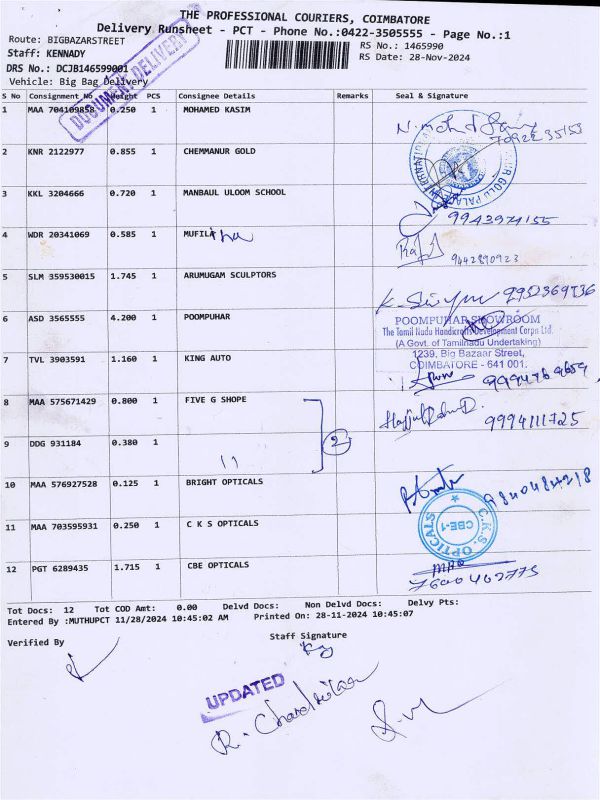 THE PROFESSIONAL COURIERS, COIMBATORE
Delivery Runsheet - PCT - Phone No.:0422-3505555 - Page No.:1
Route: BIGBAZARSTREET
RS No.: 1465990
Staff: KENNADY
RS Date: 28-Nov-2024
DRS No.: DCJB146599001
Vehicle: Big Bag Delivery
DOCUMENT DELIVERY
S No Consignment No Weight PCS Consignee Details Remarks Seal & Signature
1 MAA 704109858 0.250 1 MOHAMED KASIM
2 KNR 2122977 0.855 1 CHEMMANUR GOLD
3 KKL 3204666 0.720 1 MANBAUL ULOOM SCHOOL
9943974155
4 WDR 20341069 0.585 1 MUFILA
9442890923
5 SLM 359530015 1.745 1 ARUMUGAM SCULPTORS
6 ASD 3565555 4.200 1 POOMPUHAR
POOMPUHAR SHOWROOM
The Tamil Nadu Handicrafts Development Corpn Ltd.
(A Govt. of Tamilnadu Undertaking)
1239, Big Bazaar Street,
COIMBATORE - 641 001.
7 TVL 3903591 1.160 1 KING AUTO
8 MAA 575671429 0.800 1 FIVE G SHOPE
9994111725
9 DDG 931184 0.380 1 11
2
10 MAA 576927528 0.125 1 BRIGHT OPTICALS
11 MAA 703595931 0.250 1 C K S OPTICALS
C.K.S. OPTICALS
CBE-1
12 PGT 6289435 1.715 1 CBE OPTICALS
Tot Docs: 12 Tot COD Amt: 0.00 Delvd Docs: Non Delvd Docs: Delvy Pts:
Entered By :MUTHUPCT 11/28/2024 10:45:02 AM Printed On: 28-11-2024 10:45:07
Verified By
Staff Signature
UPDATED